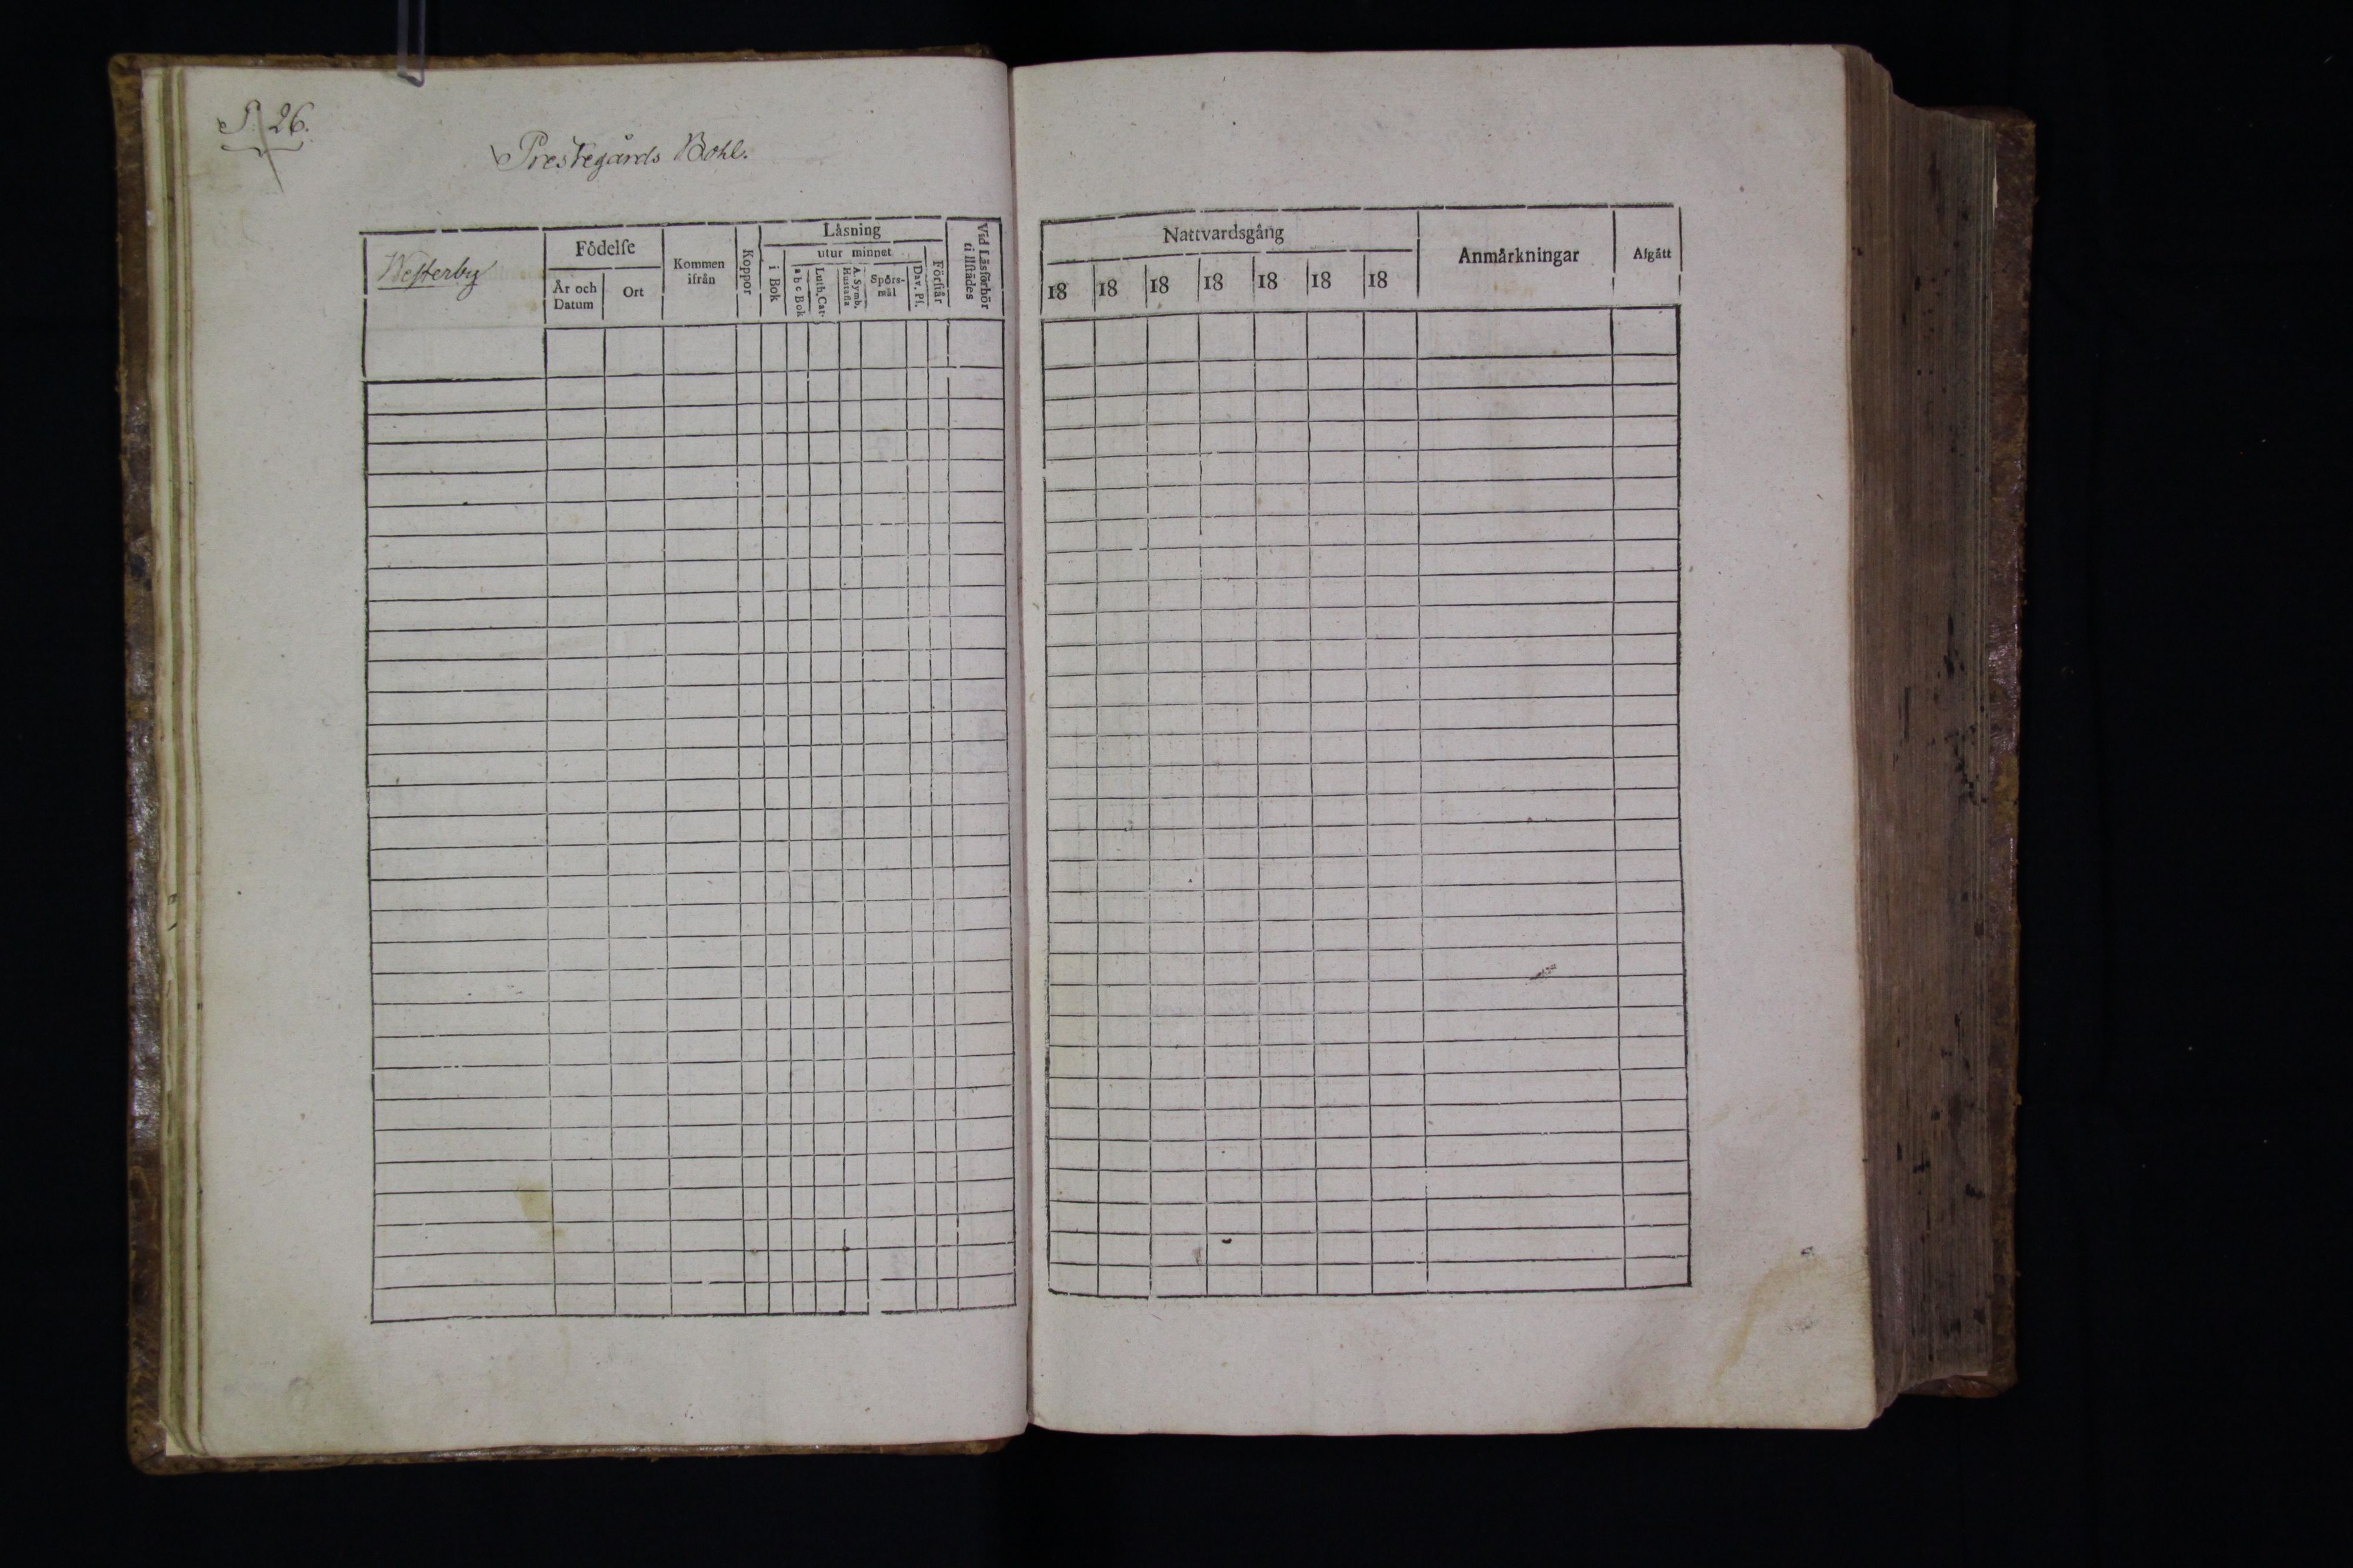 P. 26.
Prestegårds Bohl.
Westerby
Födelse
År och
Datum
Ort
Kommen
ifrån
Koppor
Läsning
i Bok
utur minnet
a b c Bok
Luth. Cat.
A. Symb.
Hustafla
Spörs-
mål
Dav. Ps.
Förstår
Vid Läsförhör
tillstädes
Nattvardsgång
18 18 18 18 18 18 18
Anmärkningar
Afgått